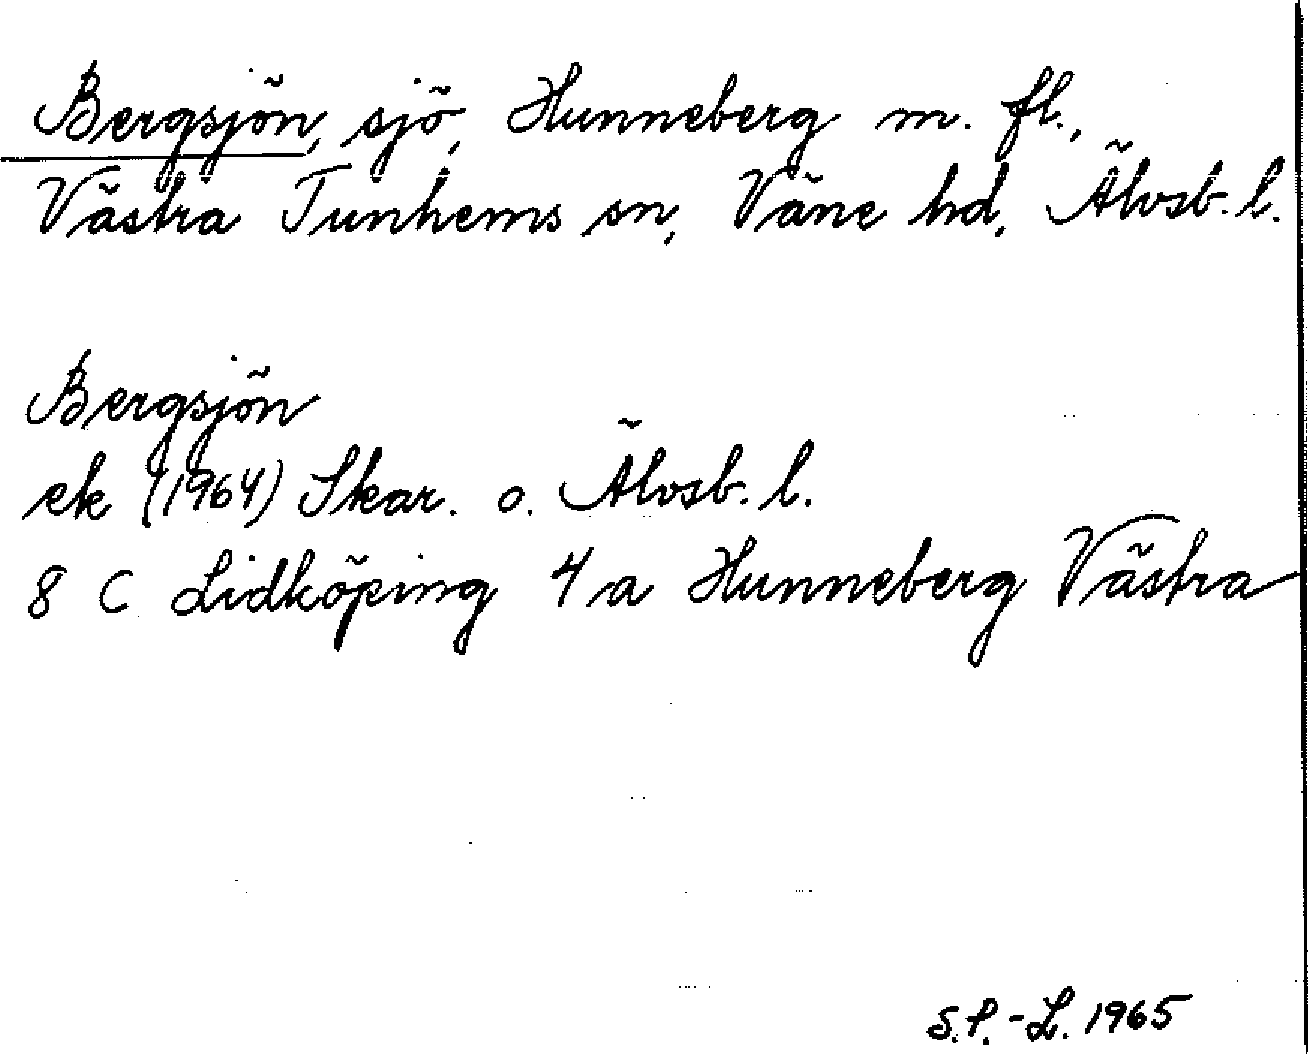 Bergsjön, sjö, Hunneberg m. fl.,
Västra Tunhems sn, Väne hd, Älvsb. l.
Bergsjön
ek (1964) Skar. o. Älvsb. l.
8 C Lidköping 4 a Hunneberg Västra
S.P.-L. 1965